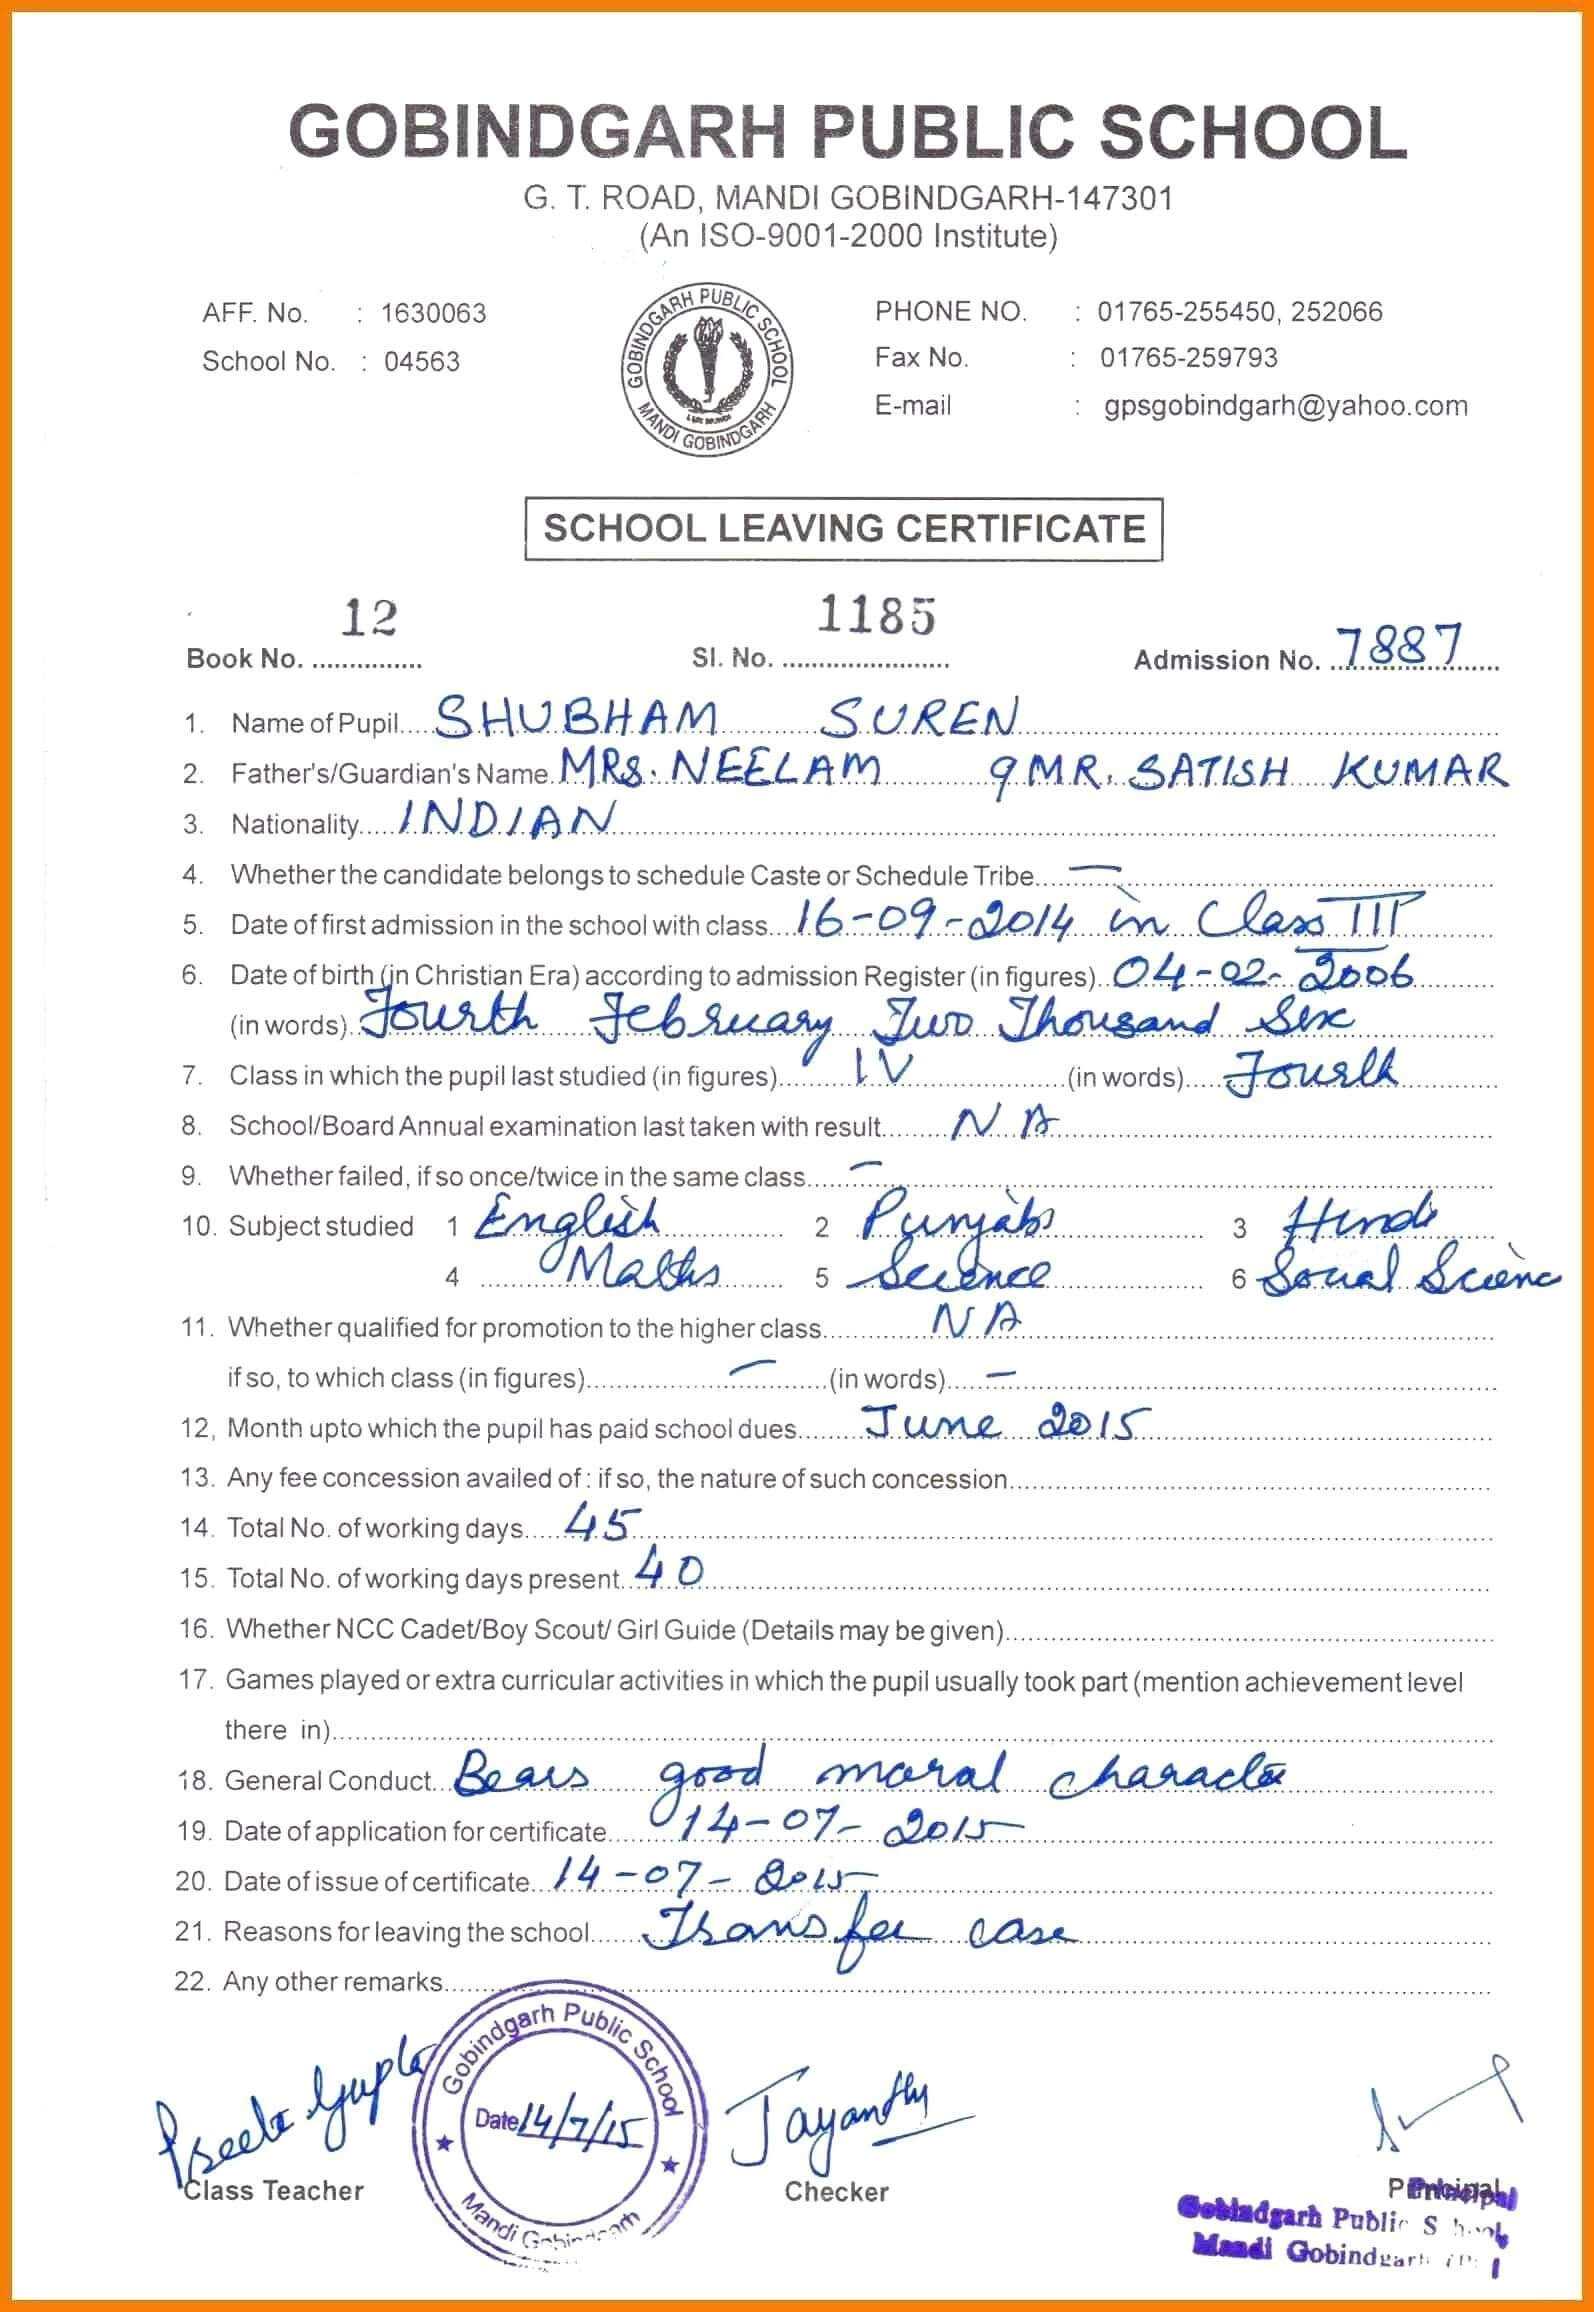 GOBINDGARH PUBLIC SCHOOL
G. T. ROAD, MANDI GOBINDGARH-147301
(An ISO-9001-2000 Institute)
AFF. No. : 1630063
School No. : 04563
GOBINDGARH PUBLIC SCHOOL
MANDI GOBINDGARH
PHONE NO. : 01765-255450, 252066
Fax No. : 01765-259793
E-mail : gpsgobindgarh@yahoo.com
SCHOOL LEAVING CERTIFICATE
Book No. 12 Sl. No. 1185 Admission No. 7887
1. Name of Pupil SHUBHAM SUREN
2. Father's/Guardian's Name MRS. NEELAM MR. SATISH KUMAR
3. Nationality INDIAN
4. Whether the candidate belongs to schedule Caste or Schedule Tribe —
5. Date of first admission in the school with class 16-09-2014 in Class III
6. Date of birth (in Christian Era) according to admission Register (in figures) 04-02-2006
(in words) Fourth February Two Thousand Six
7. Class in which the pupil last studied (in figures) IV (in words) Fourth
8. School/Board Annual examination last taken with result NA
9. Whether failed, if so once/twice in the same class —
10. Subject studied 1 English 2 Punjabi 3 Hindi
4 Maths 5 Science 6 Social Scienc
11. Whether qualified for promotion to the higher class NA
if so, to which class (in figures) — (in words) —
12, Month upto which the pupil has paid school dues June 2015
13. Any fee concession availed of : if so, the nature of such concession
14. Total No. of working days 45
15. Total No. of working days present 40
16. Whether NCC Cadet/Boy Scout/ Girl Guide (Details may be given)
17. Games played or extra curricular activities in which the pupil usually took part (mention achievement level
there in)
18. General Conduct Bears good moral character
19. Date of application for certificate 14-07-2015
20. Date of issue of certificate 14-07-2015
21. Reasons for leaving the school Transfer case
22. Any other remarks
Gobindgarh Public School
Date 14/7/15
Mandi Gobindgarh
Preeti Gupta
Jayanthy
Class Teacher Checker Principal
Principal
Gobindgarh Public School
Mandi Gobindgarh